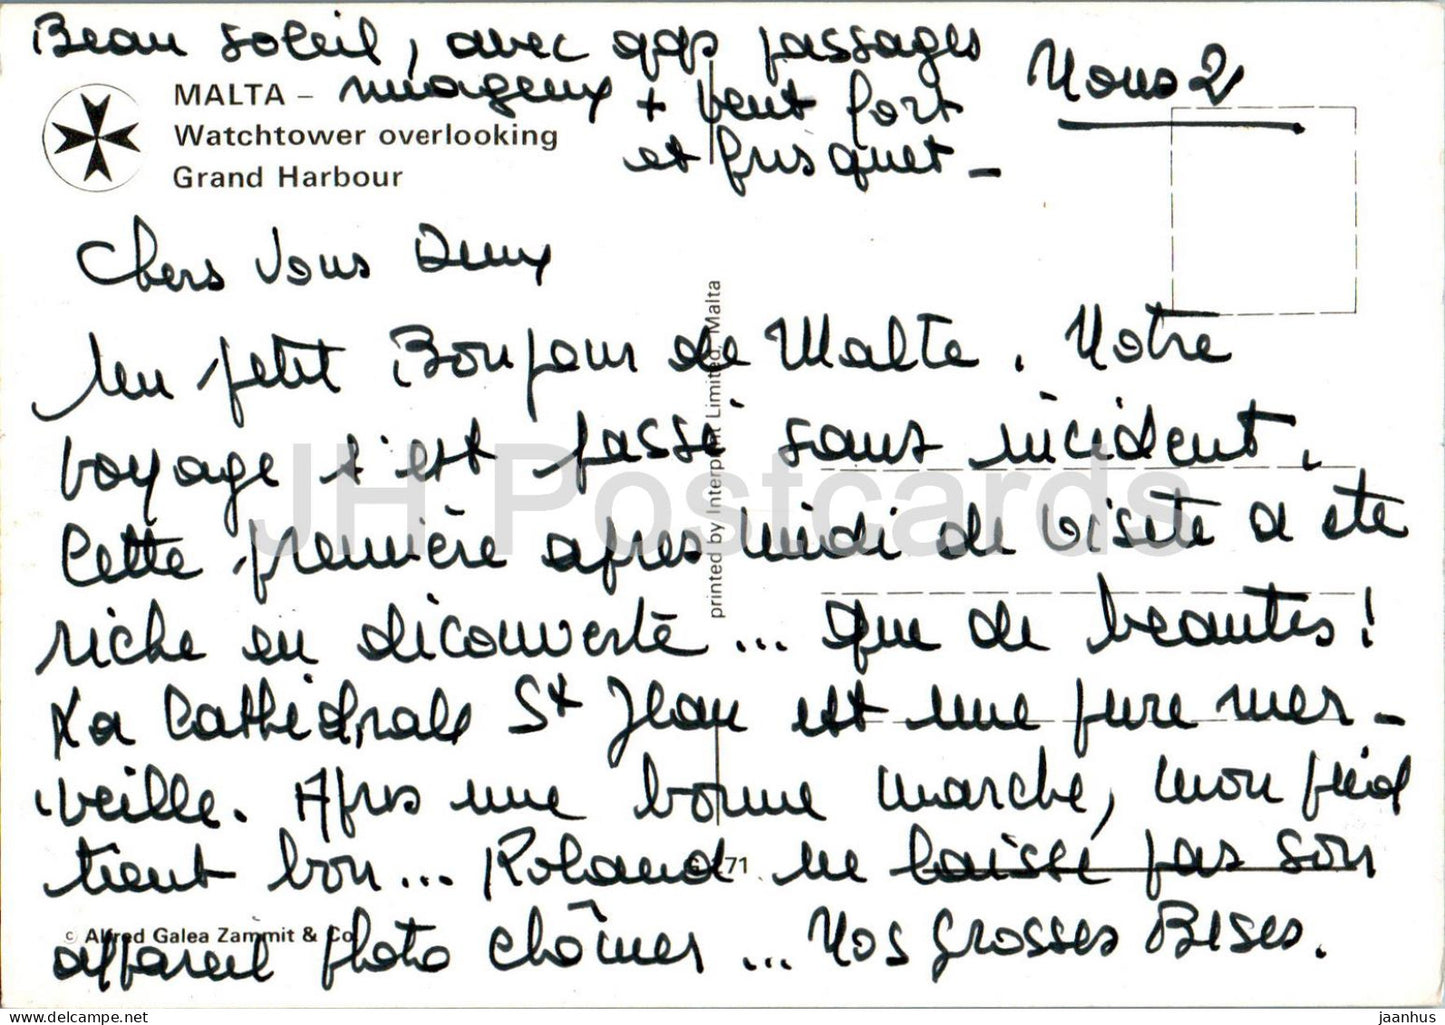 Beau soleil, avec qqs passages
nuageux + vent fort
et frisquet -
Nous 2
MALTA -
Watchtower overlooking
Grand Harbour
Chers Vous Deux
Un petit Bonjour de Malte. Notre
voyage s'est passé sans incident.
Cette première après midi de visite a été
riche en découverte... que de beautés!
La Cathédrale St Jean est une pure mer-
veille. Après une bonne marche, mon pied
tient bon... Roland ne laisse pas son
appareil photo chômer... Nos grosses Bises.
printed by Interprint Limited, Malta
© Alfred Galea Zammit & Co
JH Postcards
jaanhus